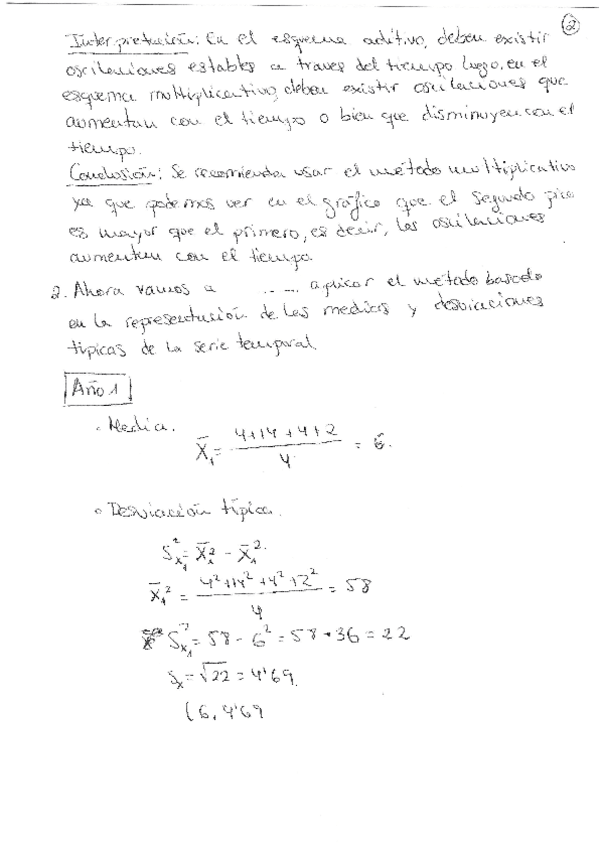 2
Interpretación: En el esquema aditivo, deben existir
oscilaciones estables a traves del tiempo luego, en el
esquema multiplicativo, deben existir oscilaciones que
aumentan con el tiempo o bien que disminuyen con el
tiempo.
Conclusión: Se recomienda usar el método multiplicativo
ya que podemos ver en el gráfico que el segundo pico
es mayor que el primero, es decir, las oscilaciones
aumentan con el tiempo.
2. Ahora vamos a aplicar el método basado
en la representación de las medias y desviaciones
típicas de la serie temporal.
Año 1
Media.
X̄₁ = (4+14+4+2)/4 = 6.
Desviación típica.
S²ₓ₁ = X̄₁² - X̄₁².
X̄₁² = (4²+14²+4²+2²)/4 = 58
S²ₓ₁ = 58 - 6² = 58 - 36 = 22
Sₓ = √22 = 4'69.
(6, 4'69